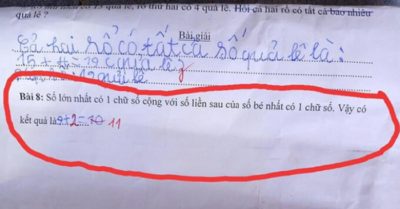 rổ thứ hai có 4 quả lê. Hỏi cả hai rổ có tất cả bao nhiêu
quả lê ?
Bài giải
Cả hai rổ có tất cả số quả lê là:
15 + 4 = 19 (quả lê)
quả lê
Bài 8: Số lớn nhất có 1 chữ số cộng với số liền sau của số bé nhất có 1 chữ số. Vậy có
kết quả là 9+2=10 11